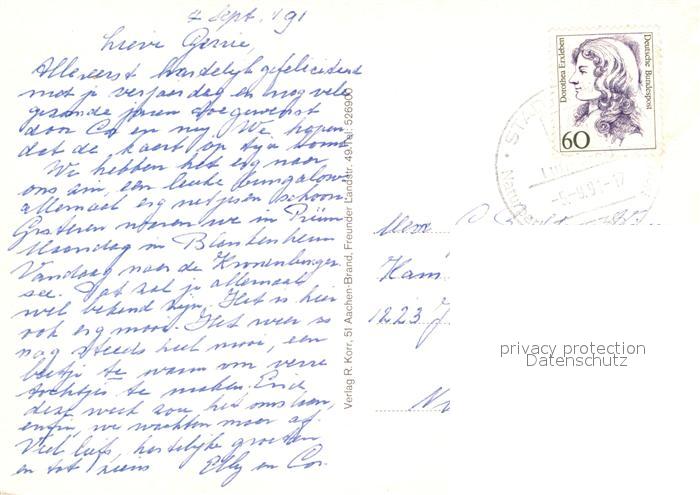 4 Sept. '91
Lieve Gerrie,
Allereerst hartelijk gefeliciteerd
met je verjaardag en nog vele
gezonde jaren toegewenst
door Cor en mij. We hopen
dat de kaart op tijd komt
We hebben het erg naar
ons zin, een leuke bungalow
allemaal erg netjes en schoon.
Gisteren waren we in Prüm
Maandag in Blankenheim
Vandaag naar de Kronenburger
see. Dat zal je allemaal
wel bekend zijn. Het is hier
ook erg mooi. Het weer is
nog steeds heel mooi, een
beetje te warm om verre
tochtjes te maken. Eind
deze week zou het omslaan,
enfin, we wachten maar af.
Veel liefs, hartelijke groeten
en tot ziens Elly en Cor.
Verlag R. Korr, 51 Aachen-Brand, Freunder Landstr. 49 Tel. 526900
Dorothea Erxleben
Deutsche Bundespost
60
STA
-17
Mevr.
1223
privacy protection
Datenschutz